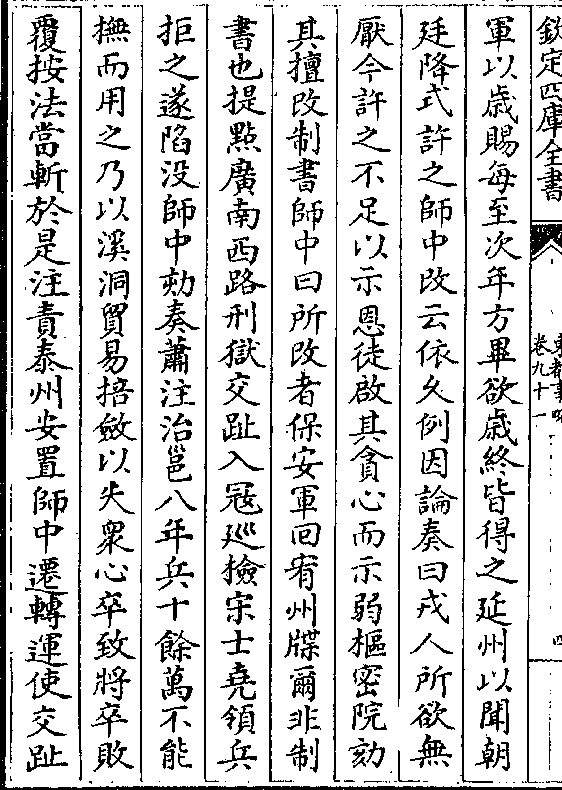 欽定四庫全書
卷九十一
四
軍以歲賜每至次年方畢欲歲終皆得之延州以聞朝
廷降式許之師中改云依久例因論奏曰戎人所欲無
厭今許之不足以示恩徒啟其貪心而示弱樞密院劾
其擅改制書師中曰所改者保安軍回宥州牒爾非制
書也提點廣南西路刑獄交趾入冦廵檢宋士堯領兵
拒之遂陷没師中劾奏蕭注治邕八年兵十餘萬不能
撫而用之乃以溪洞貿易掊斂以失衆心卒致將卒敗
覆按法當斬於是注責泰州安置師中遷轉運使交趾